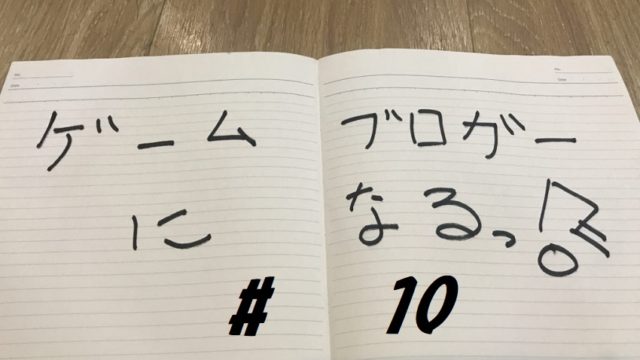 ゲームブロガー
になるっ!
# 10